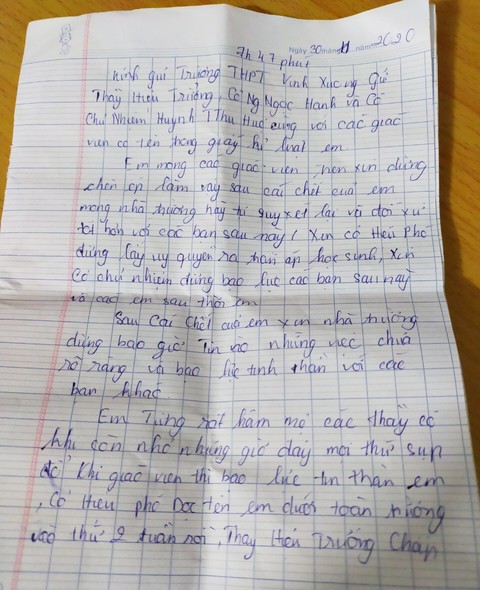 7h 47 phút Ngày 30 tháng 11 năm 2020
Kính gửi Trường THPT Vĩnh Xương Gửi
Thầy Hiệu Trưởng, Cô Ng Ngọc Hạnh và Cô
Chủ Nhiệm Huỳnh T Thu Huệ cùng với các giáo
viên có tên trong giấy kỉ luật em
Em mong các giáo viên, nên xin đừng
chèn ép làm vậy sau cái chết của em
mong nhà trường hãy tự suy xét lại và đối xử
tốt hơn với các bạn sau này! Xin cô Hiệu Phó
đừng lấy uy quyền ra đàn áp học sinh, xin
cô chủ nhiệm đừng bạo lực các bạn sau này
và các em sau thời em
Sau cái chết của em xin nhà trường
đừng bao giờ tin vào những việc chưa
rõ ràng và bạo lực tinh thần với các
bạn khác.
Em Từng rất hâm mộ các thầy cô
khi còn nhỏ nhưng giờ đây mọi thứ sụp
đổ khi giáo viên thì bạo lực tin thần em
, Cô Hiệu phó Đọc tên em dưới toàn trường
vào thứ 2 tuần rồi, Thầy Hiệu Trưởng Chấp